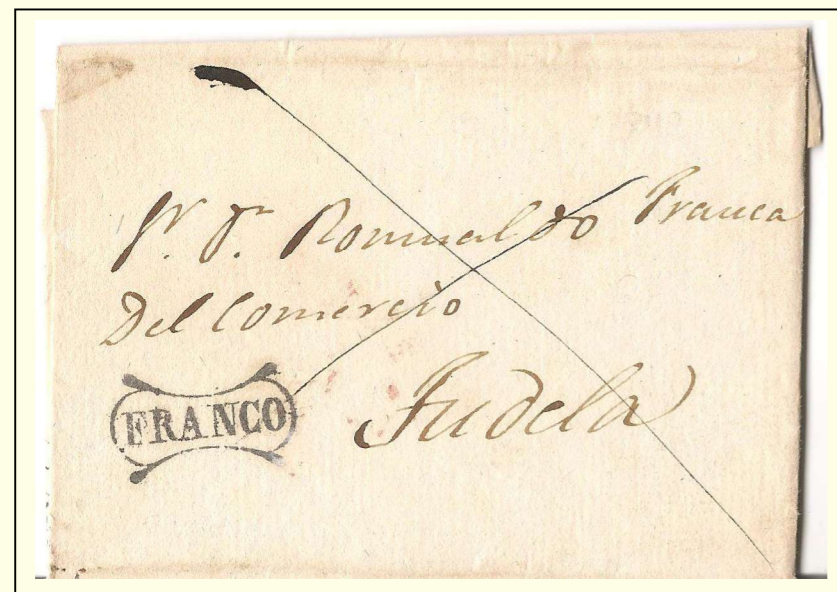 Sr. Dn. Romualdo Franca
Del Comercio
FRANCO
Tudela